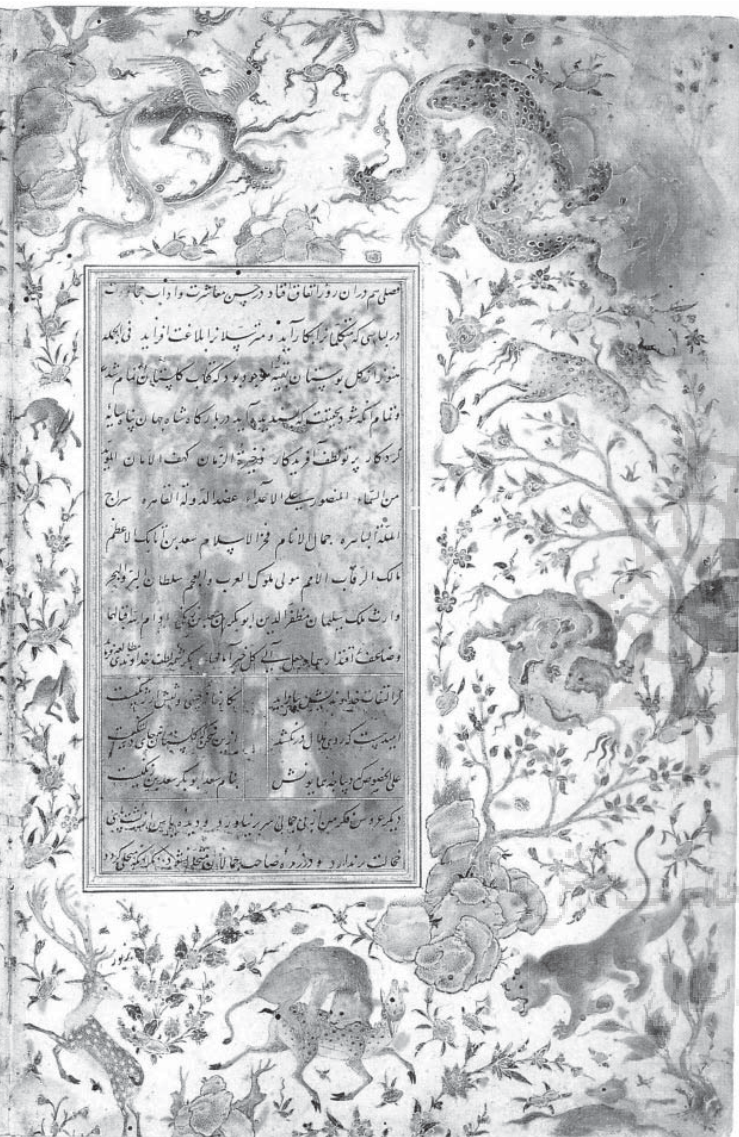 فصلی هم دران روز اتفاق افتاد در حسن معاشرت و اداب محاورت
در لباسی که متکلمانرا بکار آید و مترسلانرا بلاغت افزاید فی الجمله
هنوز از گل بوستان بقیه موجود بود که کتاب گلستان تمام شد
و تمام آنگه شود بحقیقت که پسندیده آید در بارگاه شاه جهان پناه سایه
کردگار پرتو لطف آفریدگار ذخیرة الزمان کهف الامان المؤید
من السماء المنصور علی الاعداء عضد الدولة القاهره سراج
الملة الباهره جمال الانام فخر الاسلام سعد بن اتابک الاعظم
مالک الرقاب الامم مولی ملوک العرب والعجم سلطان البر والبحر
وارث ملک سلیمان مظفر الدین ابو بکر بن سعد بن زنگی ادام الله اقبالهما
وضاعف اقتدارهما وجعل الی کل خیر مآلهما بکرشمه لطف خداوندی مطالعه فرماید
گر التفات خداوندیش بیاراید نگارخانه چینی و نقش ارژنگیست
امیدهست که روی ملال درنکشد ازین سخن که گلستان نه جای دلتنگیست
علی الخصوص که دیباچه همایونش بنام سعد ابوبکر سعد بن زنگیست
دیگر عروس فکر من از بی جمالی سر بر نیاورد و دیده یاس از پشت پای
خجالت برندارد و در زمره صاحب جمالان متجلی نشود مگر آنگه که متحلی گردد